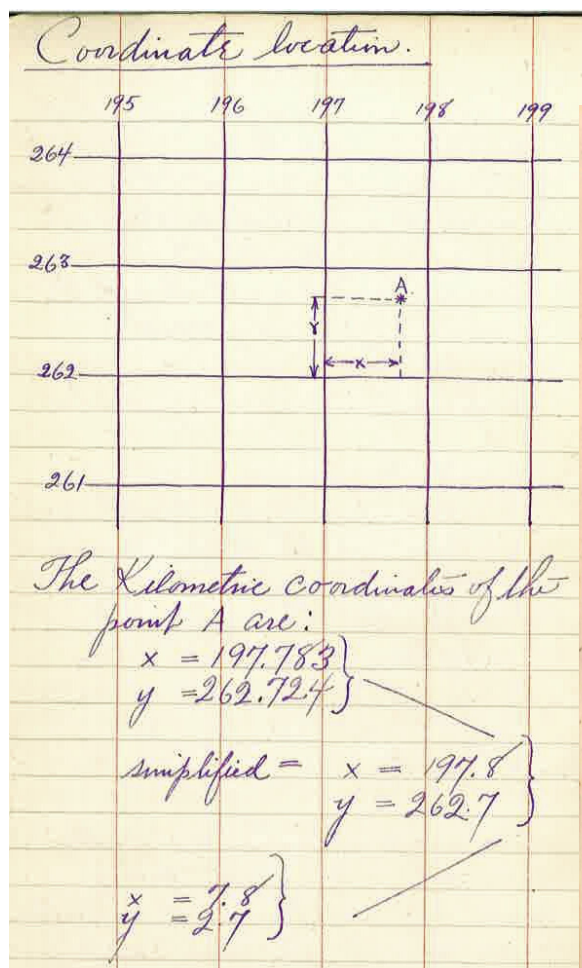 Coordinate location.
195 196 197 198 199
264
263
A
Y
X
262
261
The Kilometric coordinates of the
point A are:
x = 197.783
y = 262.724
simplified = x = 197.8
y = 262.7
x = 7.8
y = 2.7